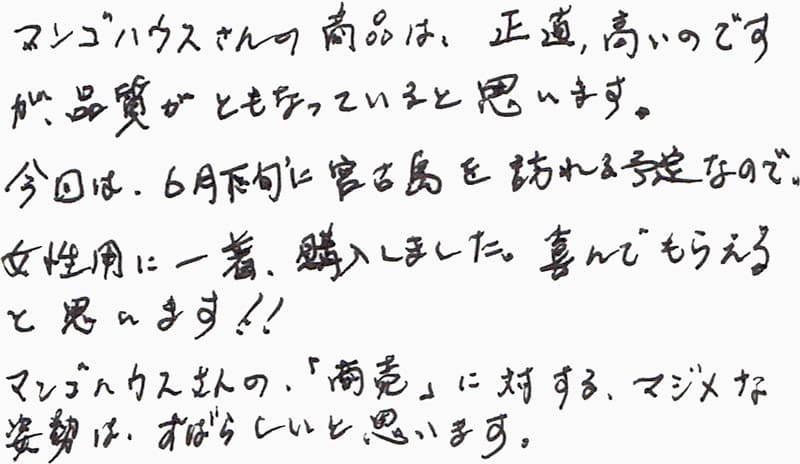 マンゴハウスさんの商品は、正直,高いのです
が、品質がともなっていると思います。
今回は、6月下旬に宮古島を訪れる予定なので、
女性用に一着、購入しました。喜んでもらえる
と思います!!
マンゴハウスさんの、「商売」に対する、マジメな
姿勢は、すばらしいと思います。